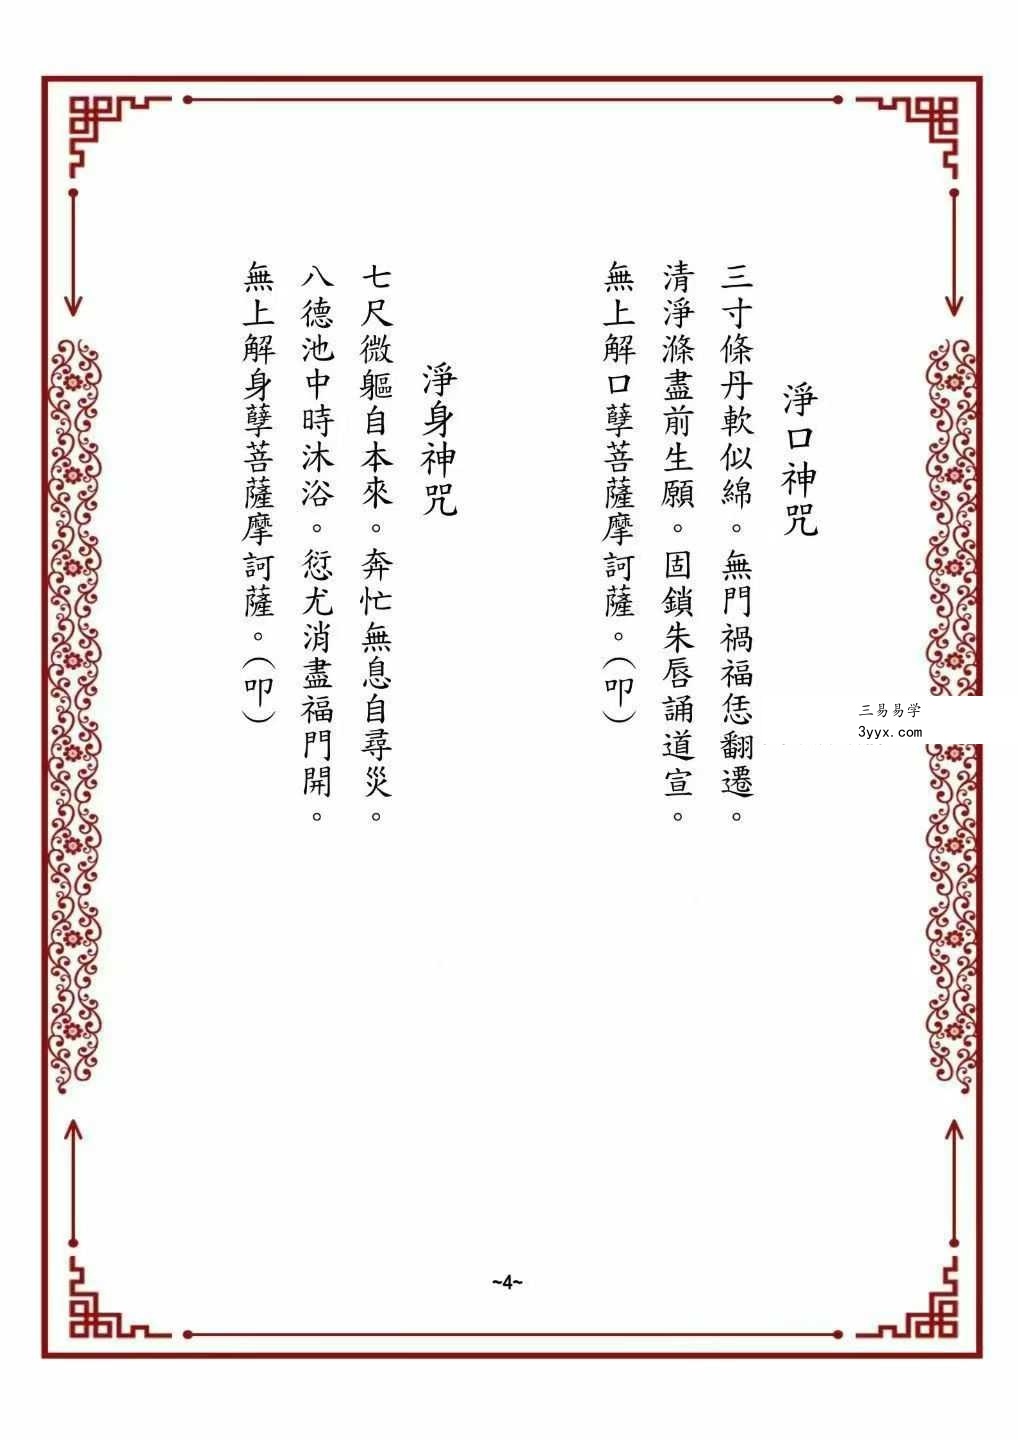 淨口神咒
三寸條丹軟似綿。無門禍福恁翻遷。
清淨滌盡前生願。固鎖朱唇誦道宣。
無上解口孽菩薩摩訶薩。（叩）
淨身神咒
七尺微軀自本來。奔忙無息自尋災。
八德池中時沐浴。愆尤消盡福門開。
無上解身孽菩薩摩訶薩。（叩）
三易易学
3yyx.com
~4~